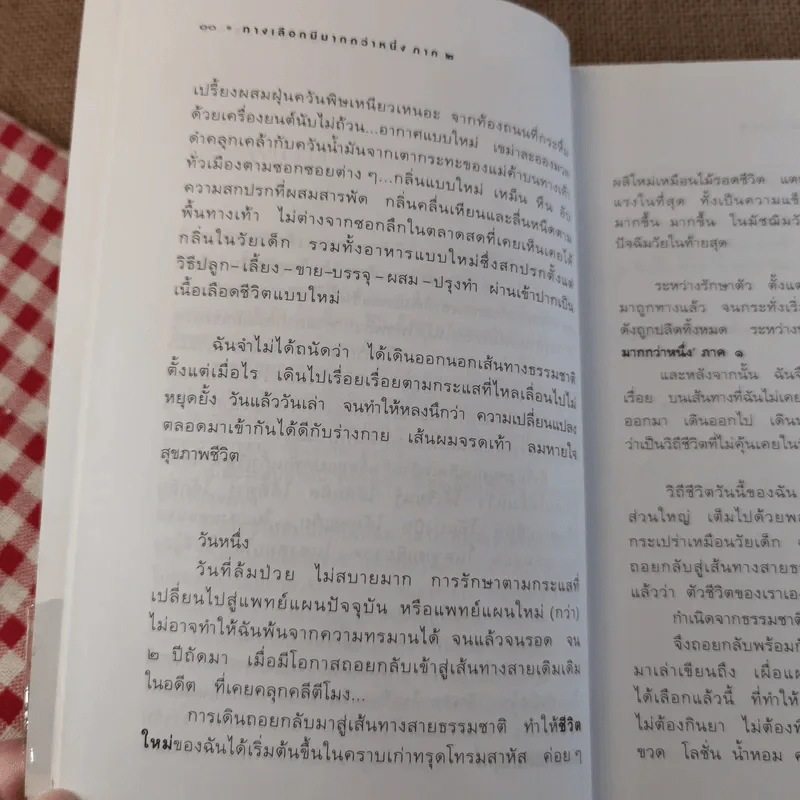 ๑๐ * ทางเลือกมีมากกว่าหนึ่ง ภาค ๒
เปรี้ยงผสมฝุ่นควันพิษเหนียวเหนอะ จากท้องถนนที่กระหึ่ม
ด้วยเครื่องยนต์นับไม่ถ้วน...อากาศแบบใหม่ เขม่าละอองมวล
ดำคลุกเคล้ากับควันน้ำมันจากเตากระทะของแม่ค้าบนทางเท้า
ทั่วเมืองตามซอกซอยต่าง ๆ...กลิ่นแบบใหม่ เหม็น หืน อับ
ความสกปรกที่ผสมสารพัด กลิ่นคลื่นเหียนและลื่นหนืดตาม
พื้นทางเท้า ไม่ต่างจากซอกลึกในตลาดสดที่เคยเห็นเคยได้
กลิ่นในวัยเด็ก รวมทั้งอาหารแบบใหม่ซึ่งสกปรกตั้งแต่
วิธีปลูก–เลี้ยง–ขาย–บรรจุ–ผสม–ปรุงทำ ผ่านเข้าปากเป็น
เนื้อเลือดชีวิตแบบใหม่
ฉันจำไม่ได้ถนัดว่า ได้เดินออกนอกเส้นทางธรรมชาติ
ตั้งแต่เมื่อไร เดินไปเรื่อยเรื่อยตามกระแสที่ไหลเลื่อนไปไม่
หยุดยั้ง วันแล้ววันเล่า จนทำให้หลงนึกว่า ความเปลี่ยนแปลง
ตลอดมาเข้ากันได้ดีกับร่างกาย เส้นผมจรดเท้า ลมหายใจ
สุขภาพชีวิต
วันหนึ่ง
วันที่ล้มป่วย ไม่สบายมาก การรักษาตามกระแสที่
เปลี่ยนไปสู่แพทย์แผนปัจจุบัน หรือแพทย์แผนใหม่ (กว่า)
ไม่อาจทำให้ฉันพ้นจากความทรมานได้ จนแล้วจนรอด จน
๒ ปีถัดมา เมื่อมีโอกาสถอยกลับเข้าสู่เส้นทางสายเดิมเดิม
ในอดีต ที่เคยคลุกคลีตีโมง...
การเดินถอยกลับมาสู่เส้นทางสายธรรมชาติ ทำให้ชีวิต
ใหม่ของฉันได้เริ่มต้นขึ้นในคราบเก่าทรุดโทรมสาหัส ค่อย ๆ
ผลิใหม่เหมือนไม้รอดชีวิต แต
แรงในที่สุด ทั้งเป็นความแข็
มากขึ้น มากขึ้น ในมัชฌิมวั
ปัจฉิมวัยในท้ายสุด
ระหว่างรักษาตัว ตั้งแต่
มาถูกทางแล้ว จนกระทั่งเริ่
ดังถูกปลิดทิ้งหมด ระหว่างท
มากกว่าหนึ่ง' ภาค ๑
และหลังจากนั้น ฉันจึ
เรื่อย บนเส้นทางที่ฉันไม่เคย
ออกมา เดินออกไป เดินท
ว่าเป็นวิถีชีวิตที่ไม่คุ้นเคยในท
วิถีชีวิตวันนี้ของฉัน
ส่วนใหญ่ เต็มไปด้วยพล
กระเปร่าเหมือนวัยเด็ก
ถอยกลับสู่เส้นทางสายธร
แล้วว่า ตัวชีวิตของเราเอง
กำเนิดจากธรรมชาติ
จึงถอยกลับพร้อมกั
มาเล่าเขียนถึง เผื่อแผ
ได้เลือกแล้วนี้ ที่ทำให้
ไม่ต้องกินยา ไม่ต้องที
ขวด โลชั่น น้ำหอม ค